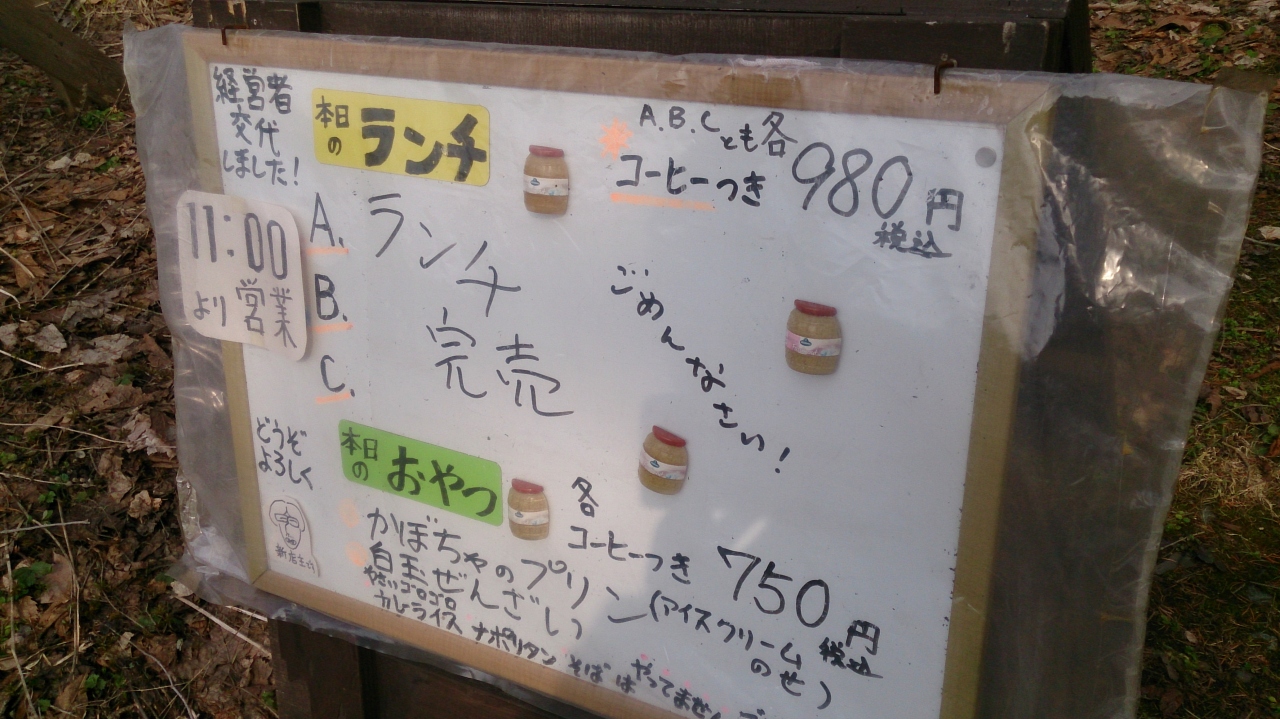 経営者
交代
しました!
本日の
ランチ
A.B.Cとも各
コーヒーつき
980円
税込
11:00
より営業
A.
B.
C.
ランチ
完売
ごめんなさい!
どうぞ
よろしく
本日の
おやつ
各
コーヒーつき
750円
税込
かぼちゃのプリン(アイスクリーム
のせ)
白玉ぜんざい
やさいゴロゴロ
カレーライス ナポリタン そばは やってません